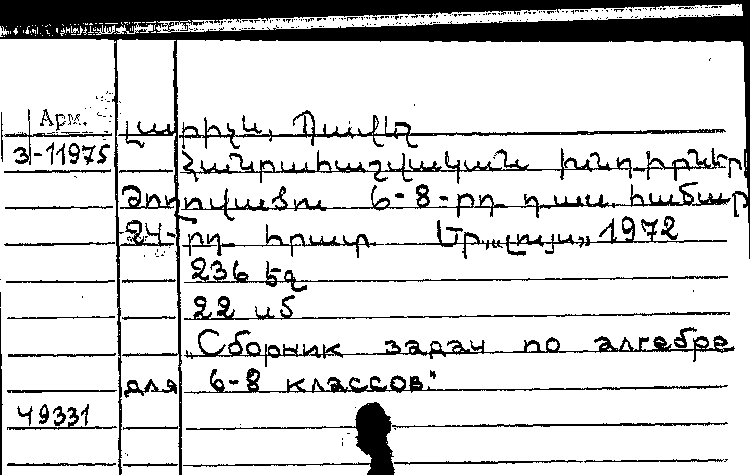 Арм.
Լարիչև, Պավել
З-11975
Հանրահաշվական խնդիրների
Ժողովածու 6-8-րդ դաս. համար
24-րդ հրատ. Եր., „Լույս„ 1972
236 էջ
22 սմ
„Сборник задач по алгебре
для 6-8 классов."
49331